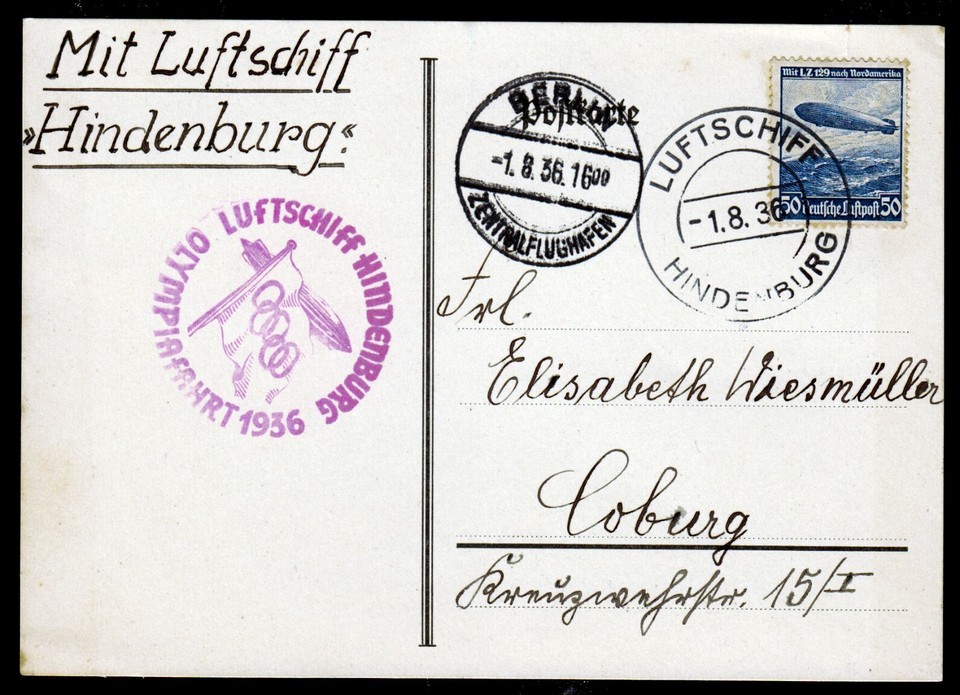 Mit Luftschiff
»Hindenburg«.
LUFTSCHIFF HINDENBURG
OLYMPIAFAHRT 1936
Postkarte
BERLIN
-1.8.36.16 00
ZENTRALFLUGHAFEN
LUFTSCHIFF
-1.8.36
HINDENBURG
Mit LZ 129 nach Nordamerika
50 Deutsche Luftpost 50
Frl.
Elisabeth Wiesmüller
Coburg
Kreuzwehrstr. 15/I